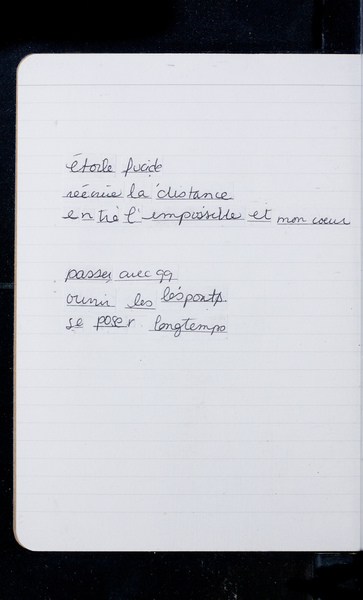 étoile lucide
réécrire la distance
entre l'impossible et mon coeur
passer avec qq
ouvrir les ponts
se poser longtemps